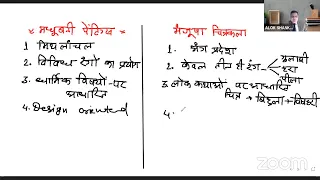 * मधुबनी पेंटिंग *
1 मिथलांचल
2. विविध रंगों का प्रयोग
3. धार्मिक विषयों पर
आधारित
4. Design oriented
मंजूषा चित्रकला
1. अंग प्रदेश
2. केवल तीन रंग
गुलाबी
हरा
पीला
3. लोक कथाओं पर आधारित
चित्र → बिहुला + विषहरी
4.
ALOK SHANK...
zoom